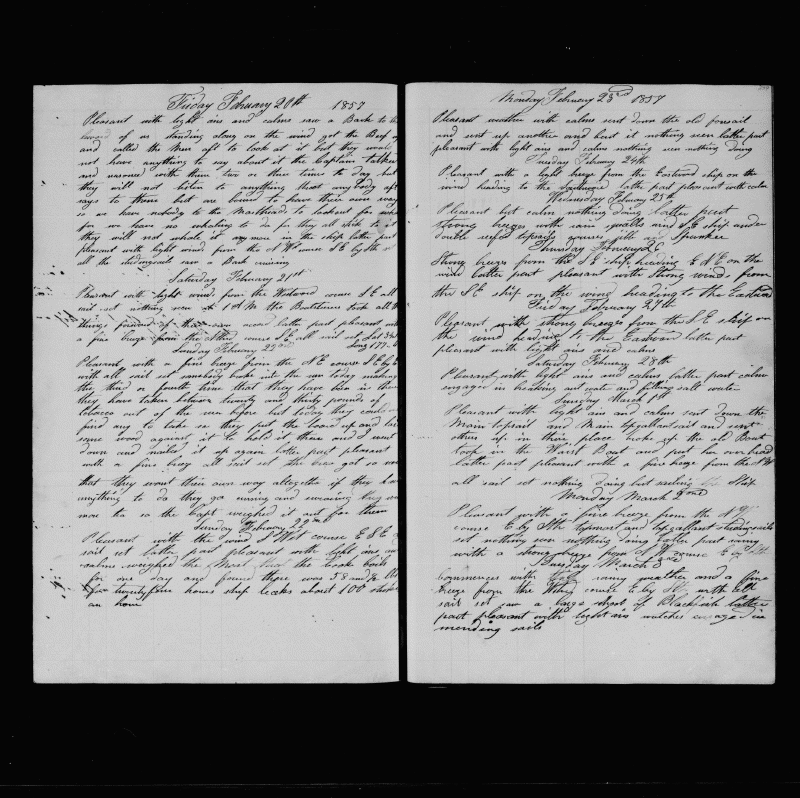 Friday February 20th 1857
Pleasant with light airs and calms saw a Bark to the
of us standing along on the wind got the Beef
and called the Men aft to look at it but they would
not have anything to say about it the Captain talked
and reasoned with them two or three times to day but
they will not listen to anything that any body aft
says to them but are bound to have their own way
so we have nobody to the Mastheads to lookout for
for we have no whaling to do for they all stick to it
they will not whale it any more in the ship latter part
pleasant with light wind from the N W course S E by
all the studdingsails saw a Bark cruising
Saturday February 21st
Pleasant with light wind from the Westward course S E all
sail set nothing seen at 1 P M the Boatsteerers took all
things forward of own accord latter part pleasant with
a fine breeze from the course S E all sail set Lat
Sunday February 22nd Long 177
Pleasant with a fine breeze from the N E course S E by
with all sail set somebody broke in the run today making
the third or fourth time that they have been in there
they have taken between twenty and thirty pounds of
tobacco out of the run before but today they could
find any to take so they put the board up and
some wood against it to hold it there and I went
down and nailed it up again latter part pleasant
with a fine breeze all sail set the has got so
that they want their own way altogether if they have
anything to do they go cursing and swearing
more tea so the Capt weighed it out for them
Sunday February 22nd
Pleasant with the wind N West course E S E
sail set latter part pleasant with light airs and
calms weighed the Meat that the cook boils
for one day and found there was 58 and lbs
for twenty four hours ship leaks about 100 strokes
an hour
Monday February 23rd 1857
Pleasant weather with calms sent down the old foresail
and sent up another and bent it nothing seen latter part
pleasant with light airs and calms nothing seen nothing doing
Tuesday February 24th
Pleasant with a light breeze from the Eastward ship on the
wind heading to the latter part pleasant with calm
Wednesday February 25th
Pleasant but calm nothing doing latter part
strong breezes with rain squalls and S E ship under
double reefed topsails courses jib and Spanker
Thursday February 26
Strong breeze from the S E ship heading E N E on the
wind latter part pleasant with strong winds from
the S E ship on the wind heading to the Eastward
Friday February 27th
Pleasant with strong breezes from the S E ship on
the wind heading to the Eastward latter part
pleasant with light airs and calms
Saturday February 28th
Pleasant with light airs and calms latter part calm
engaged in breaking out water and filling salt water
Sunday March 1st
Pleasant with light airs and calms sent down the
Main topsail and Main topgallantsail and sent
others up in their place broke up the old Boat
took in the Waist Boat and put her over head
latter part pleasant with a fine breeze from the N W
all sail set nothing doing but sailing the Ship
Monday March 2nd
Pleasant with a fine breeze from the N W
course E by topmast and topgallant studingsails
set nothing seen nothing doing latter part rainy
with a strong breeze from N W course E
Tuesday March 3rd
Commences with rainy weather and a fine
breeze from the course E by with all
sail set saw a large shoal of Blackfish latter
part pleasant with light airs watches engaged in
mending sails